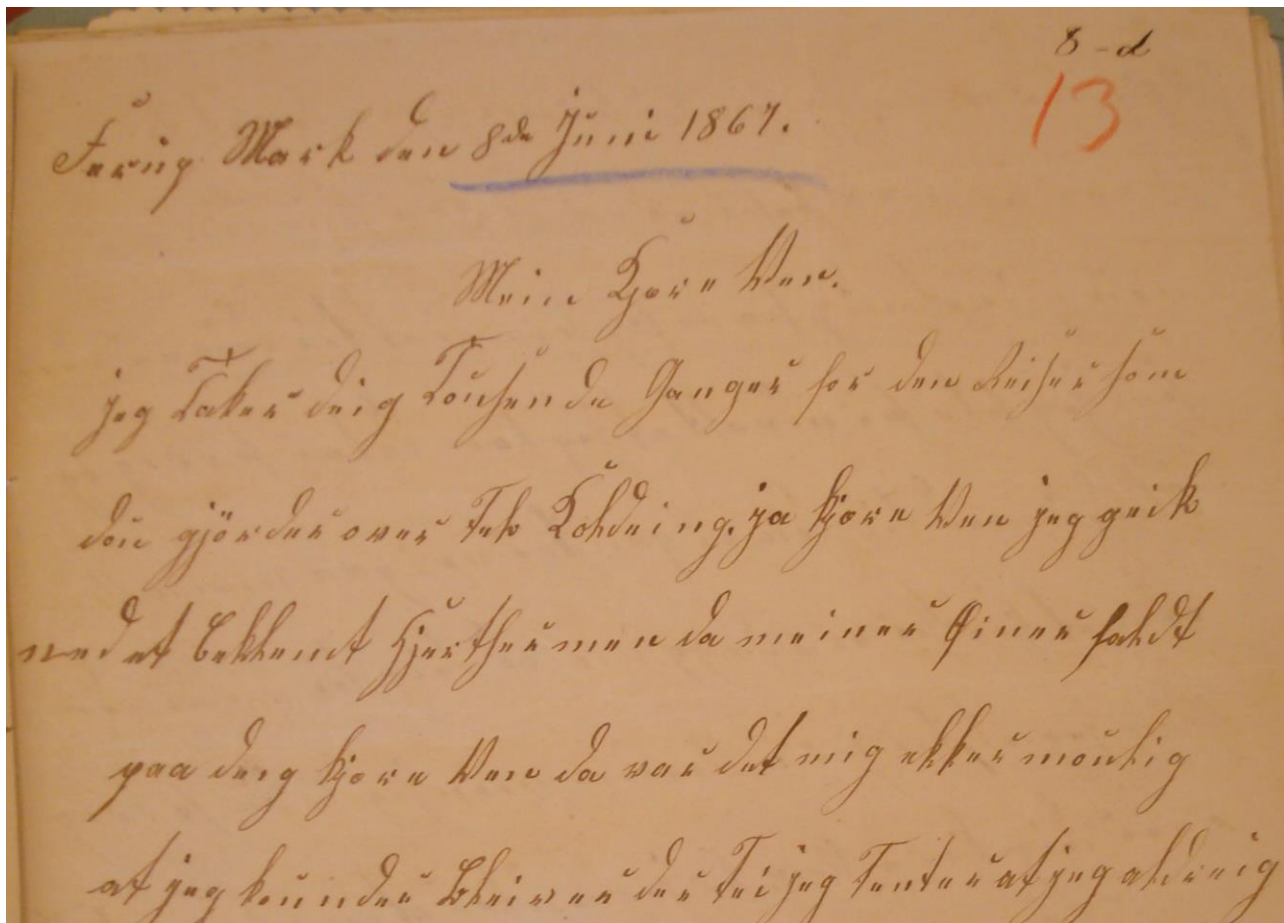 8-d
13
Ferup Mark den 8de Juni 1867.
Mein Kjære Ven.
jeg Taker deig Tousende Ganger for den Reiser som
dou gjörder over Tel Koldeing. ja kjære Ven jeg geik
med et beklemt Hjerther men da meiner Øiner faldt
paa deig kjære Ven da var det mig ekker moulig
at jeg kounder bleiver der Tei jeg Tenter at jeg aldreig